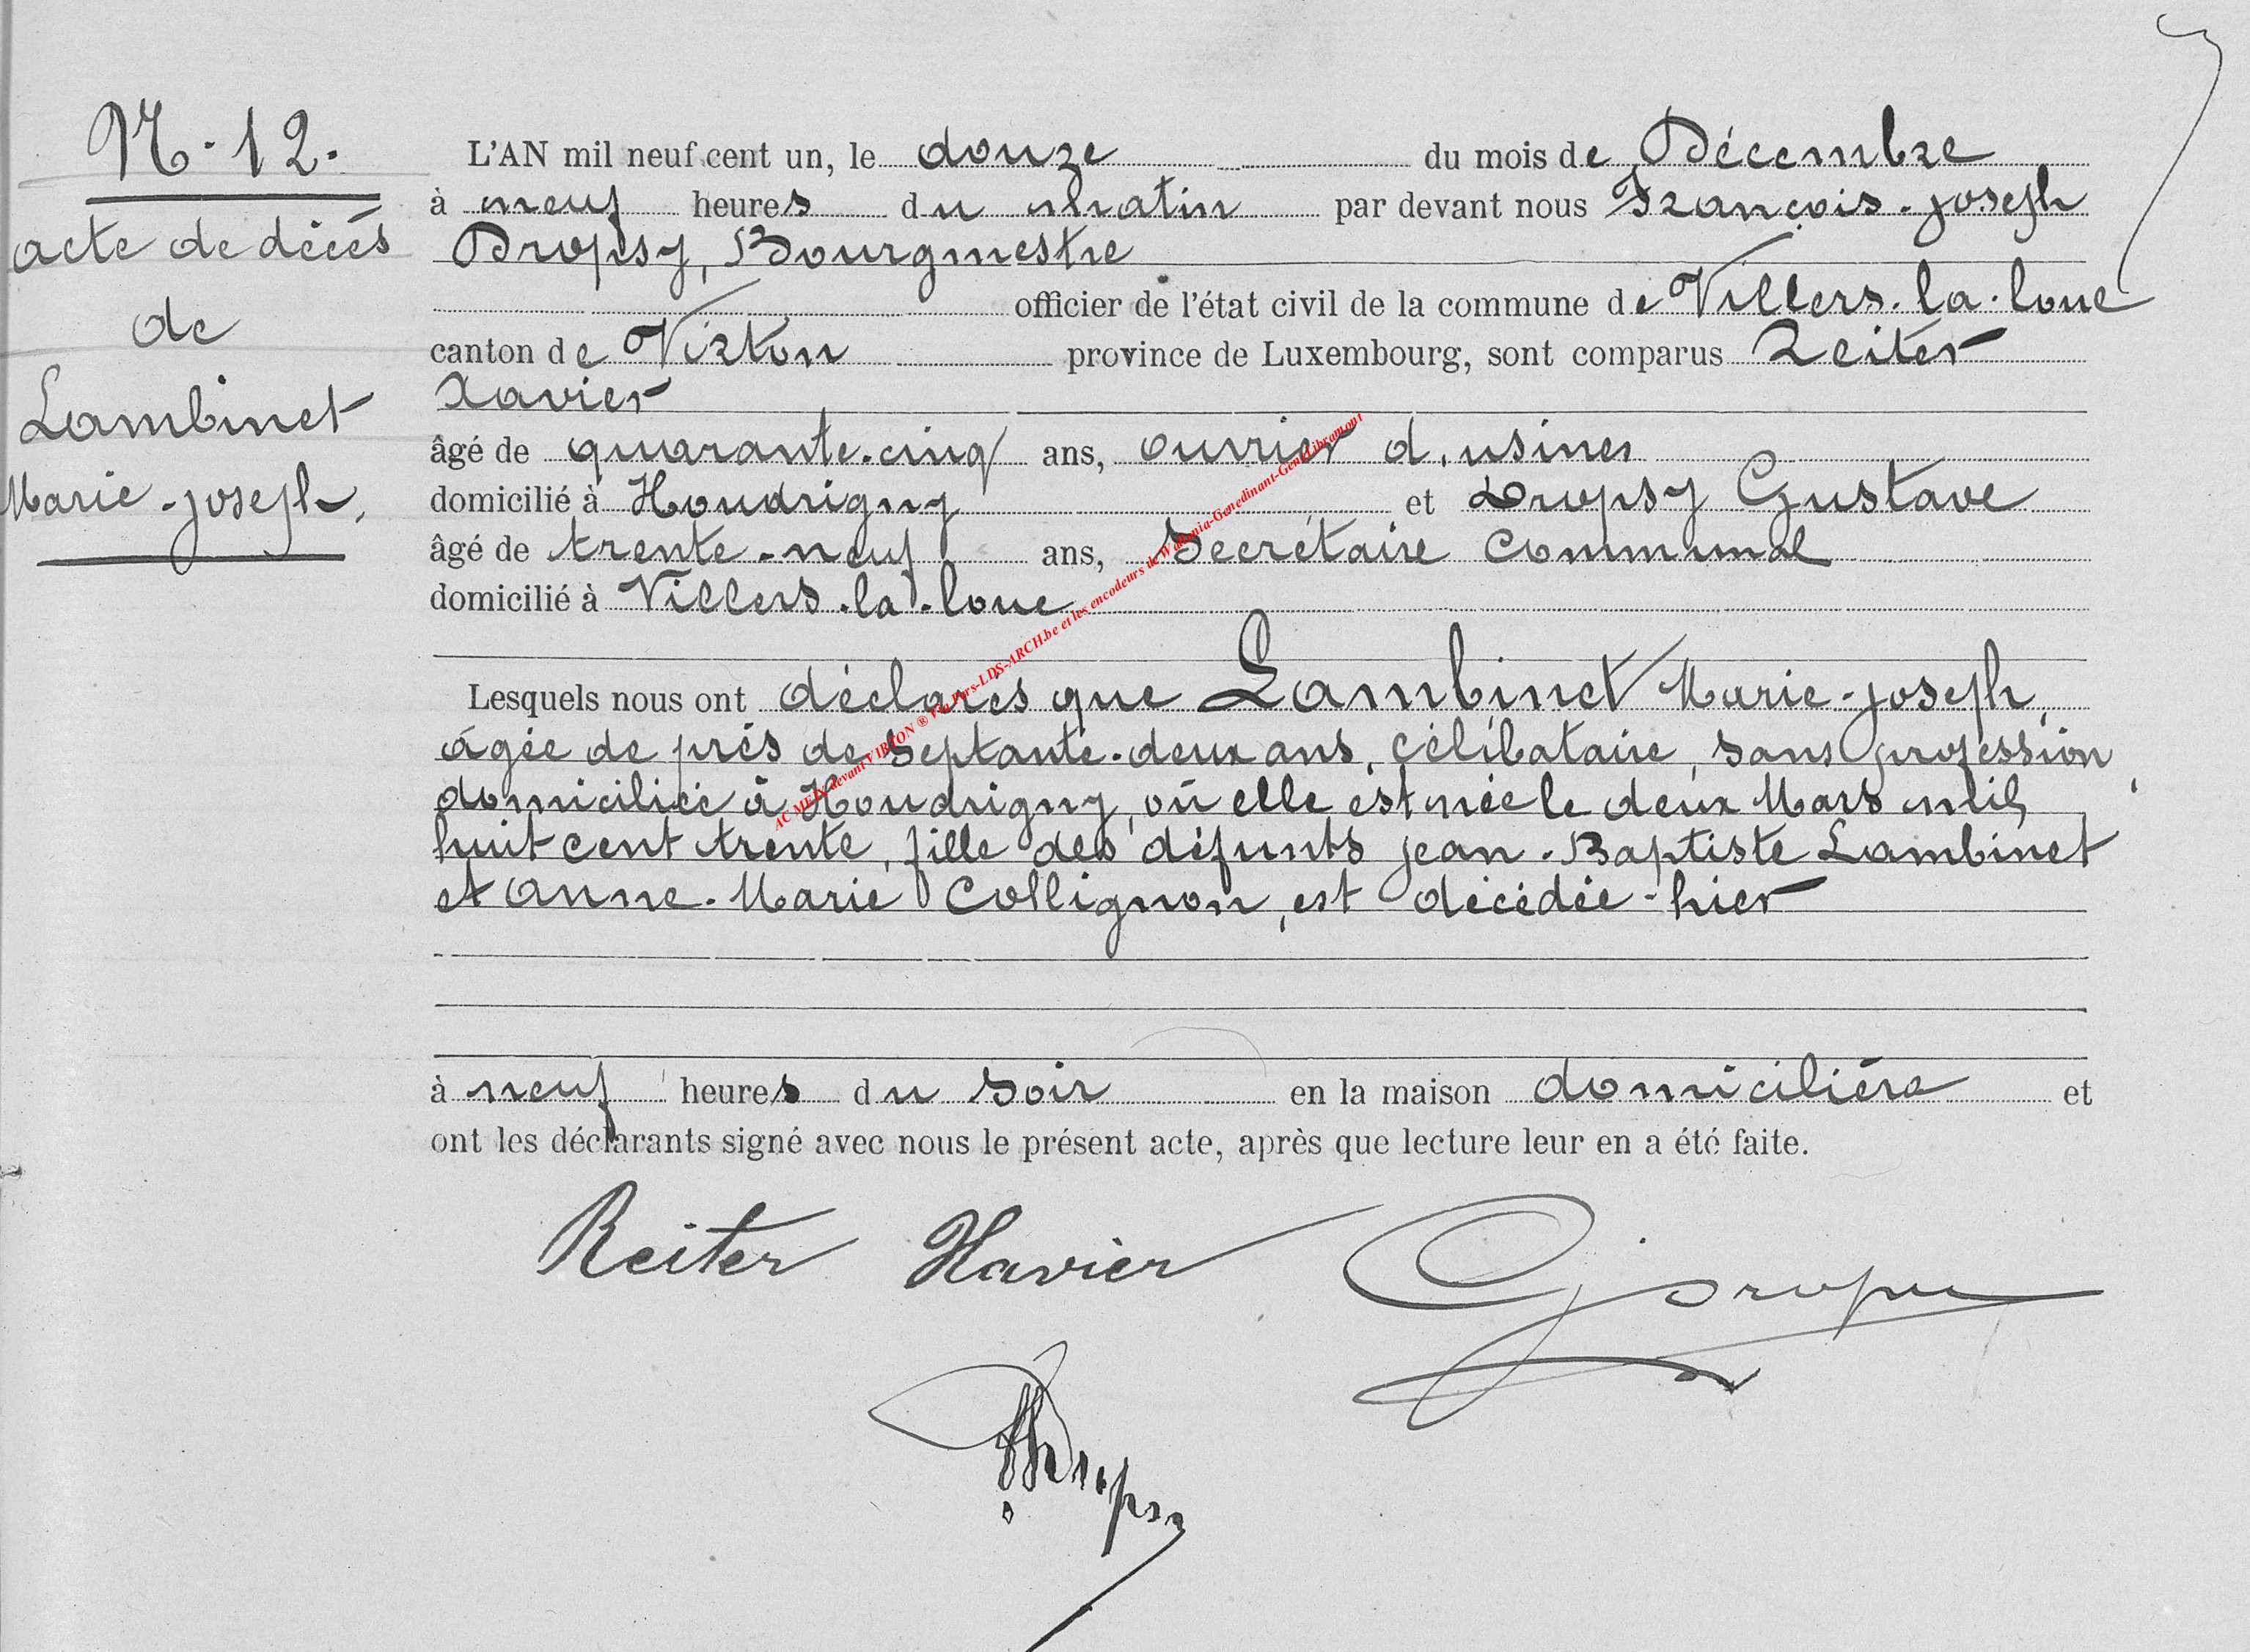 N. 12.
acte de décés
de
Lambinet
Marie-joseph.
L'AN mil neuf cent un, le douze du mois de Décembre
à neuf heures du matin par devant nous François-joseph
Dropsy, Bourgmestre
officier de l'état civil de la commune de Villers-la-loue
canton de Virton province de Luxembourg, sont comparus Reiter
Xavier
âgé de quarante-cinq ans, ouvrier d'usines
domicilié à Houdrigny et Dropsy Gustave
âgé de trente-neuf ans, Secrétaire Communal
domicilié à Villers-la-loue
Lesquels nous ont déclarés que Lambinet Marie-joseph,
âgée de près de septante-deux ans, célibataire, sans profession,
domiciliée à Houdrigny, où elle est née le deux Mars mil
huit cent trente, fille des défunts jean-Baptiste Lambinet
et anne-Marie Collignon, est décédée hier
à neuf heures du soir en la maison domiciliére et
ont les déclarants signé avec nous le présent acte, après que lecture leur en a été faite.
Reiter Xavier G Dropsy
Dropsy
AC MEIX devant VIRTON ® LDS-ARCH.be et les encodeurs de Wallonia-Genedinant-GenLibramont